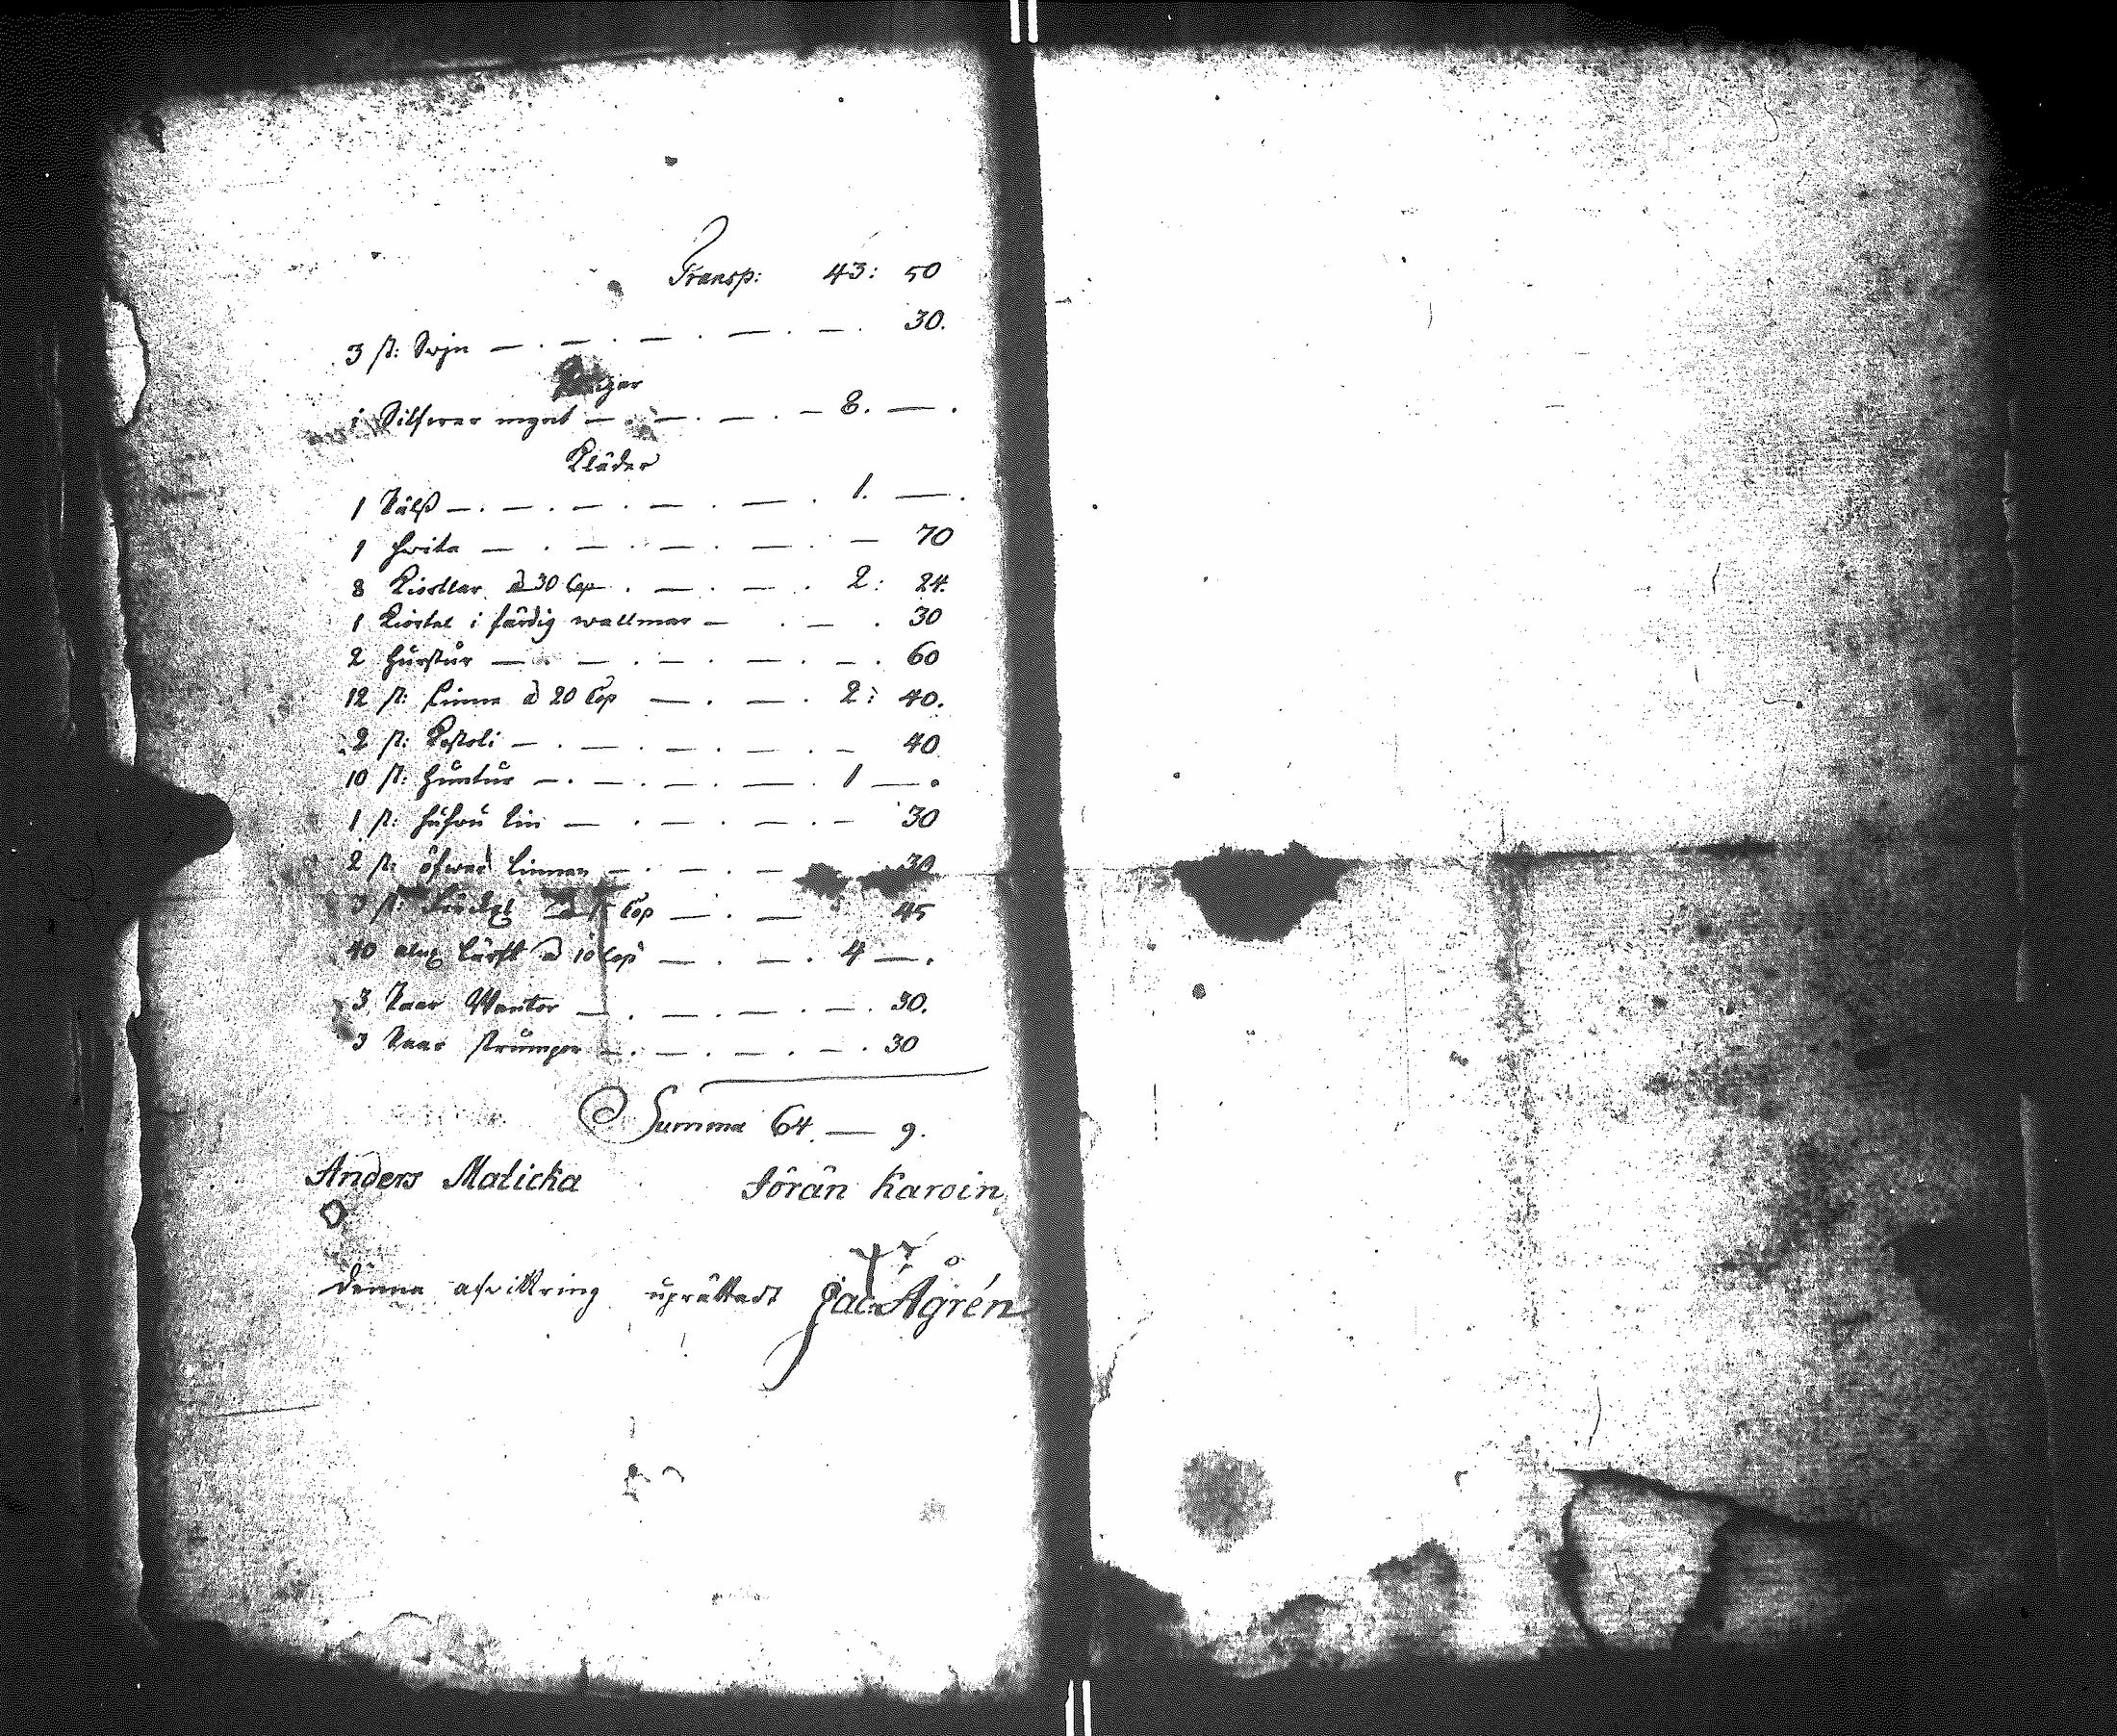 Transp: 43: 50
3 st: Swjn — . — . — . — . — . 30.
Pengar
i Silfwer mynt — . — . — . — 8. — .
Kläder
1 Pälß — . — . — . — . — . 1. — .
1 hwita — . — . — . — . — 70
8 Kiortlar à 30 Cop . — . — . 2: 24.
1 Kiortel i färdig wallmar — . — . 30
2 hurstur — . — . — . — . — . 60
12 st: linne à 20 Cop — . — . 2: 40.
2 st: — . — . — . — . — 40
10 st: — . — . — . — 1 — .
1 st: lin — . — . — . — 30
2 st: öfwer linnen — . — . — 30
3 st: Cop — . — 45
40 aln lärft à 10 Cop — . — . 4 — .
3 Paar Wantor — . — . — . — . 30.
3 Paar strumpor — . — . — . — . 30
Summa 64. — 9.
Anders Malicka Jörän Karoin
Denna afwittring uprättadt Jac Ågrén